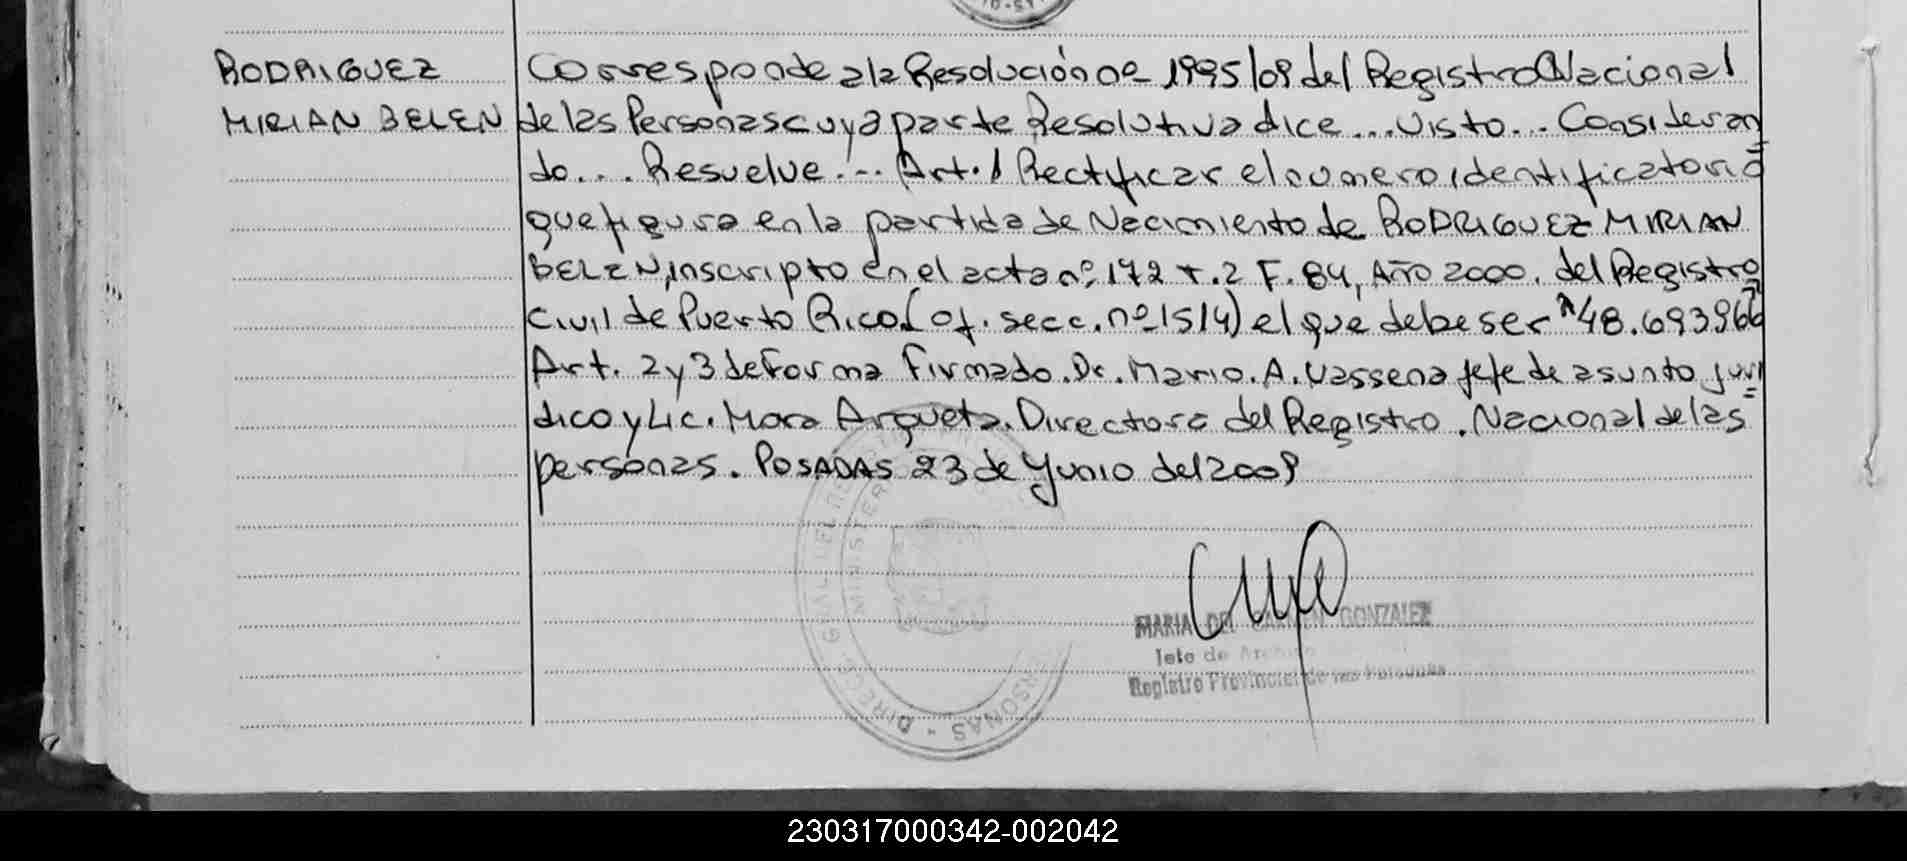 RODRIGUEZ
MIRIAN BELEN
Corresponde a la Resolución nº 1995/09 del Registro Nacional
de las Personas cuya parte Resolutiva dice... Visto... Consideran
do... Resuelve... Art. 1 Rectificar el numero identificatorio
que figura en la partida de Nacimiento de RODRIGUEZ MIRIAN
BELEN, inscripto en el acta nº 172 T. 2 F. 84, Año 2000. del Registro
Civil de Puerto Rico (of. secc. nº 1514) el que debe ser 48.693.967
Art. 2 y 3 de Forma Firmado. Dr. Mario. A. Vassena jefe de asunto juri
dico y Lic. Mora Arqueta. Directora del Registro. Nacional de las
personas. POSADAS 23 de Junio del 2009
MARIA DEL CARMEN GONZALEZ
Jefe de Archivo
Registro Provincial de las Personas
DIREC. GRAL DEL PERSONAS
MINISTER
230317000342-002042